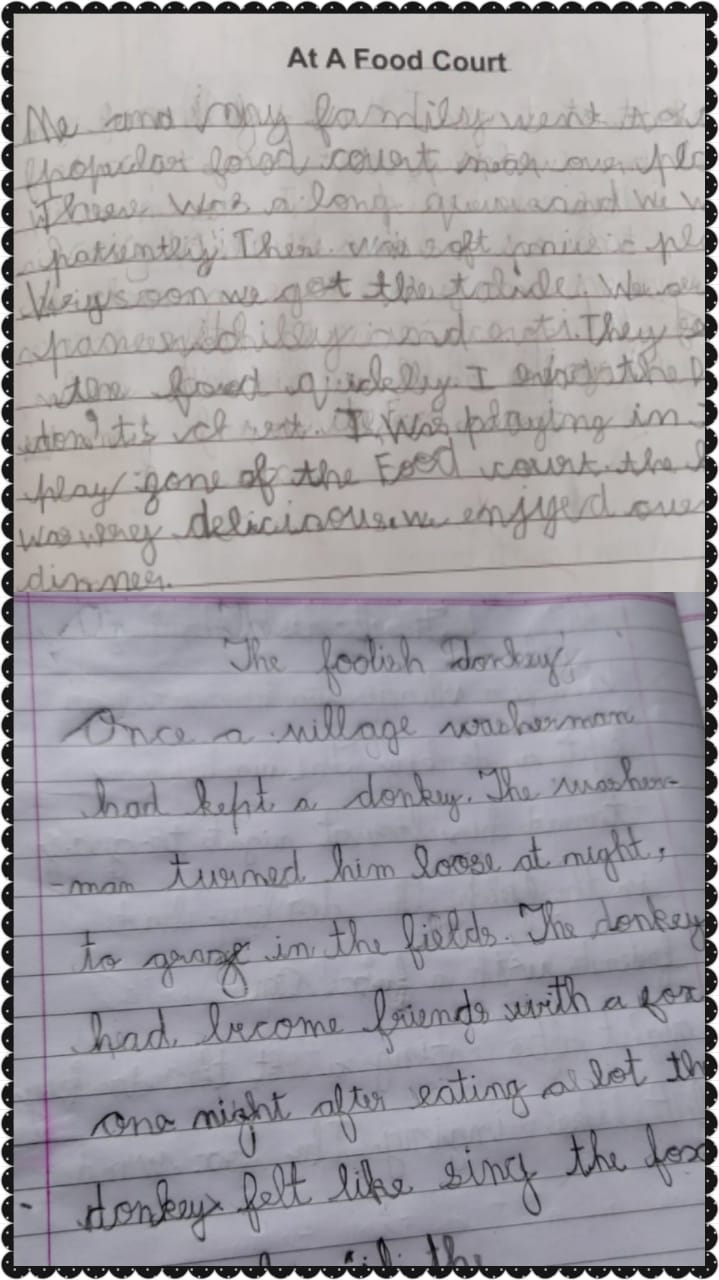 At A Food Court
Me and my family went to
popular food court near our pl
There was a long queue and we w
patiently. There was soft music pl
Very soon we got the table. We
paneer chilly and roti. They
the food quickly. I
don't. I was playing in
play gone of the Food court. the
was very deliciaous. we enjyed our
dinner.
The foolish Donkey
Once a village washerman
had kept a donkey. The washer-
-man turned him loose at night,
to graze in the fields. The donkey
had become friends with a fox
one night after eating a lot th
donkey felt like sing the fox
the